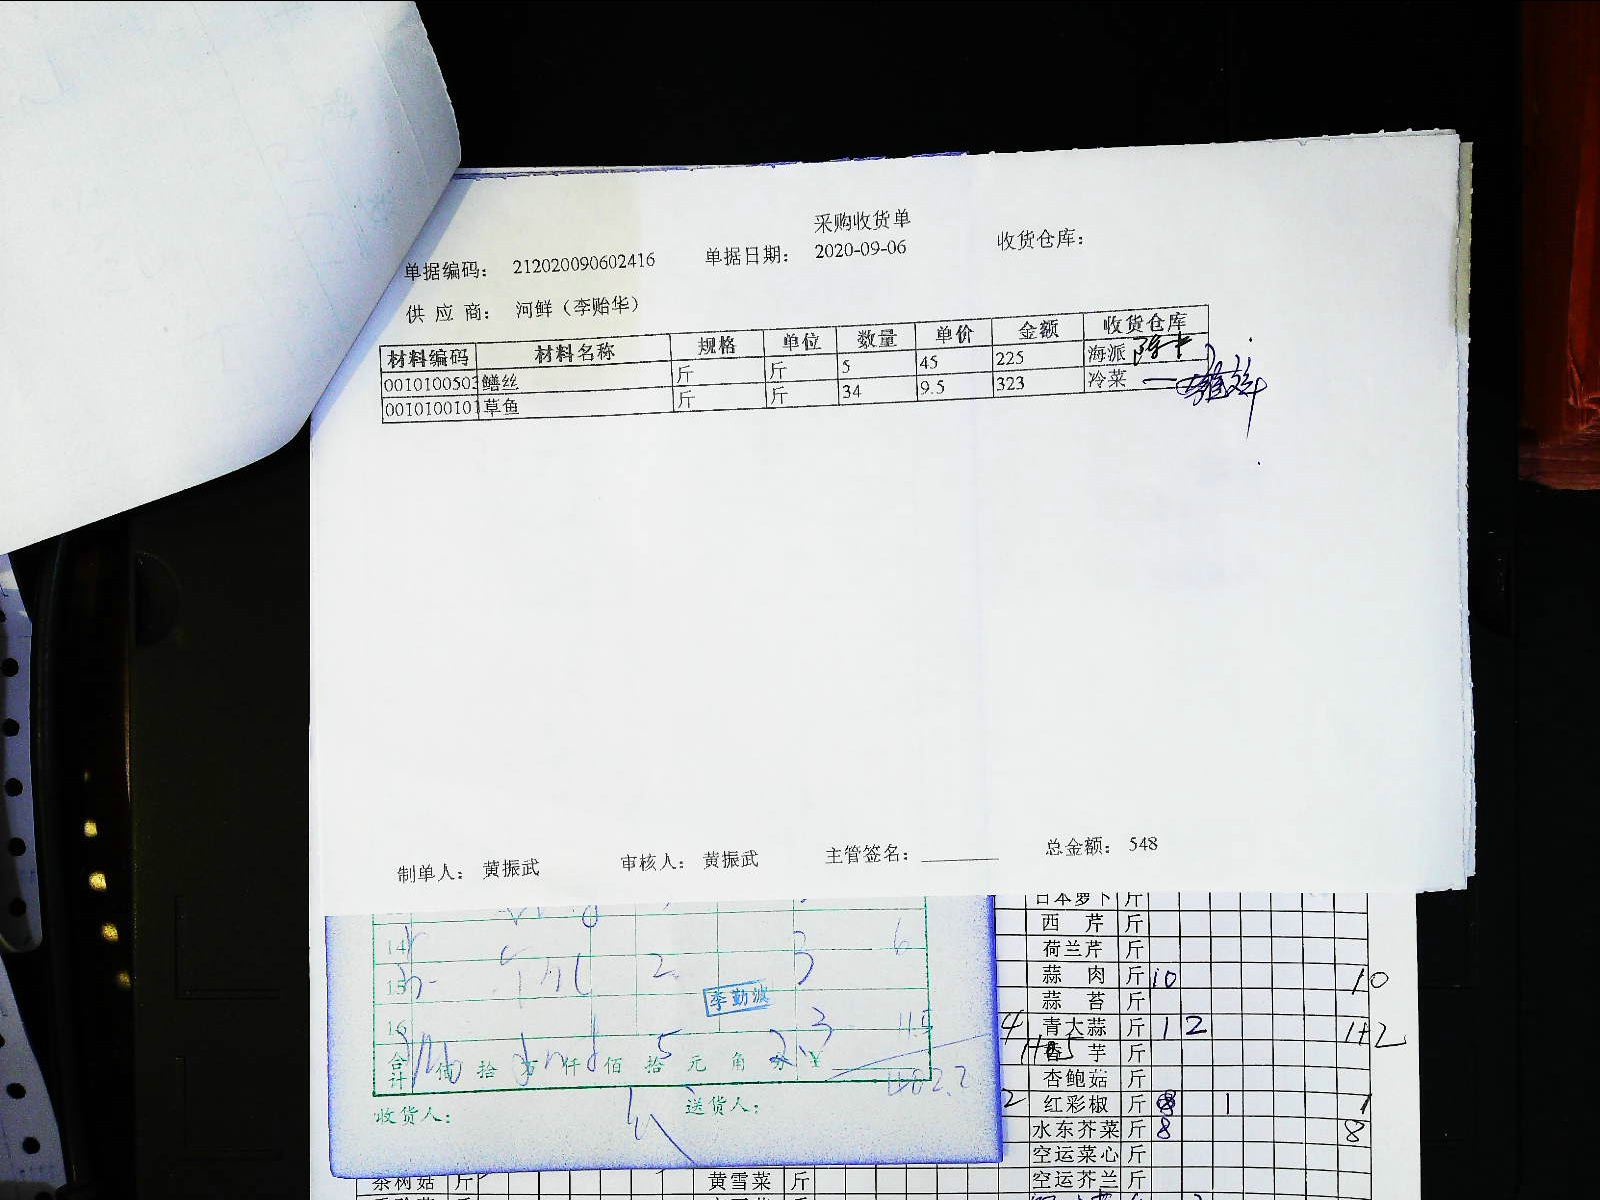 采购收货单
单据编码： 212020090602416 单据日期： 2020-09-06 收货仓库：
供 应 商： 河鲜（李贻华）
材料编码 材料名称 规格 单位 数量 单价 金额 收货仓库
001010050 鳝丝 斤 斤 5 45 225 海派
001010010 草鱼 斤 斤 34 9.5 323 冷菜
制单人： 黄振武 审核人： 黄振武 主管签名： 总金额： 548
日本萝卜 斤
西 芹 斤
荷兰芹 斤
蒜 肉 斤 10 10
蒜 苔 斤
青大蒜 斤 1 2 1+2
香 芋 斤
杏鲍菇 斤
红彩椒 斤 1 1
水东芥菜 斤 8 8
空运菜心 斤
空运芥兰 斤
14 6
15 2 3
李勤波
16 3
合计 佰 拾 万 仟 佰 拾 元 角 分 ¥
收货人： 送货人：
茶树菇 斤 黄雪菜 斤